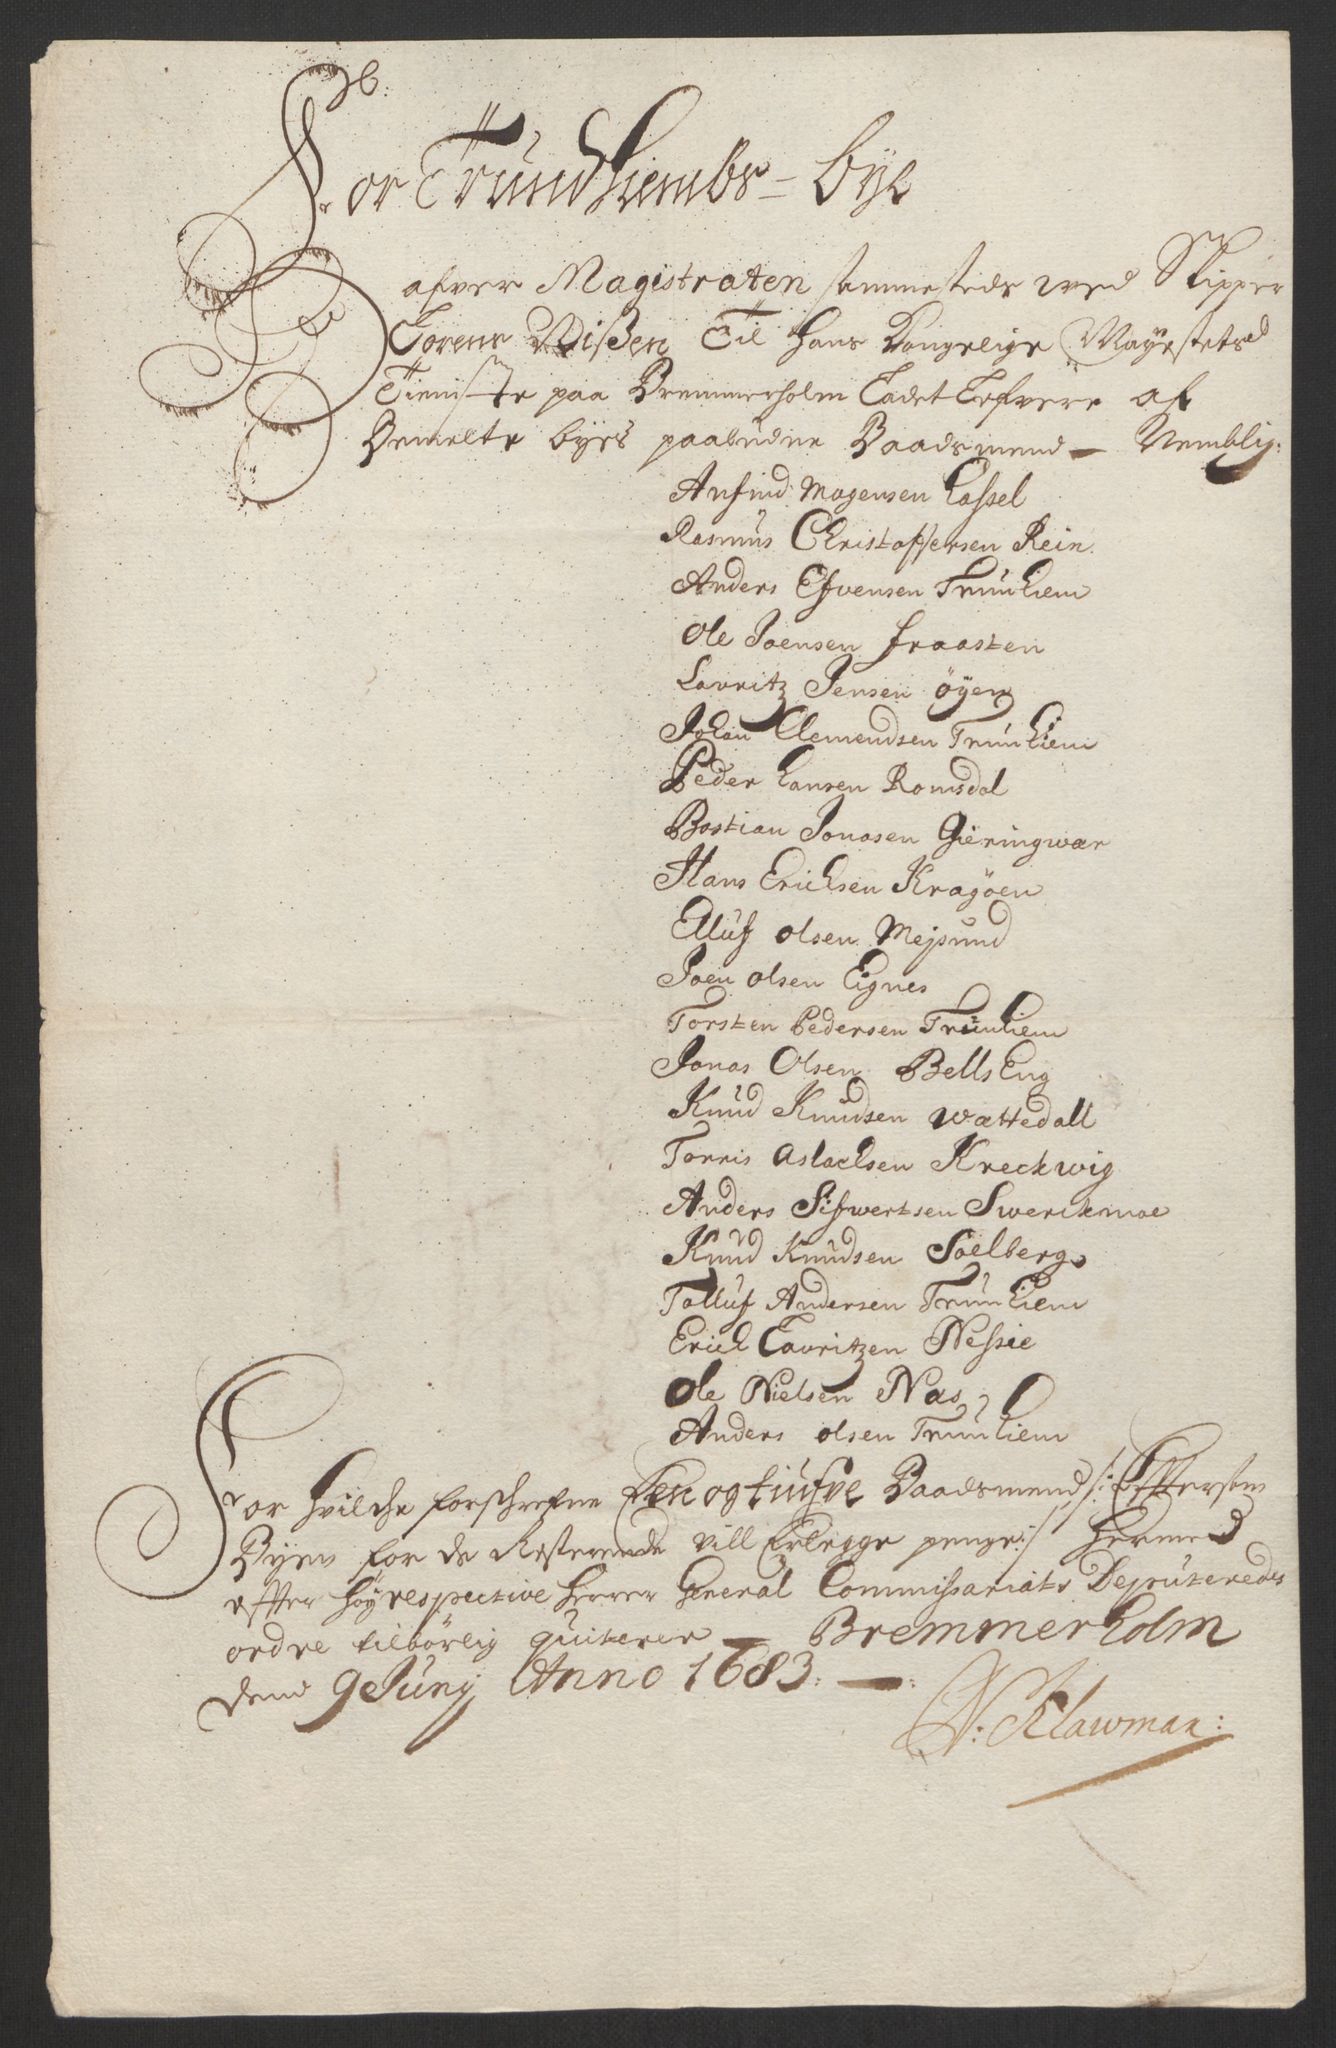 For Trundhiembs - bye
Hafver Magistraten sammesteds wed Skipper
Lorens Nissen Til Hans Kongelige Mayestets
Tieniste paa Bremmerholm Ladet Lefvere af
Bemelte byes paabudne Baadsmend — Nemblig:
Anfind Mogensen Cassel
Rasmus Christoffersen Rein
Anders Efvensen Trunhiem
Ole Joensen fraasten
Lavritz Jensen öyen
Johan Clemendsen Trunhiem
Peder Hansen Romsdal
Bastian Jonasen Gieringwær
Hans Erichsen Kragöen
Elluf olsen Mejsund
Joen olsen Eignes
Torsten Pedersen Trunhiem
Jonas Olsen BellsEng
Knud Knudsen wattedall
Torris Aslachsen Kreckwig
Anders Sifwertsen Swerckmoe
Knud Knudsen Soelberg
Tolluf Andersen Trunhiem
Erich Lavritzen Nessie
Ole Nielsen Nas
Anders olsen Trunhiem
For hvilche forschrefne Een og tiufve Baadsmend /: Efftersom
Byen for de Resterende vill Erlegge penge :/ hermed
effter höyrespective Herrer General Commissariats Deputeredes
ordre tilbörlig quiterer — Bremmerholm
dend 9 Juny Anno 1683. —
Klawman: